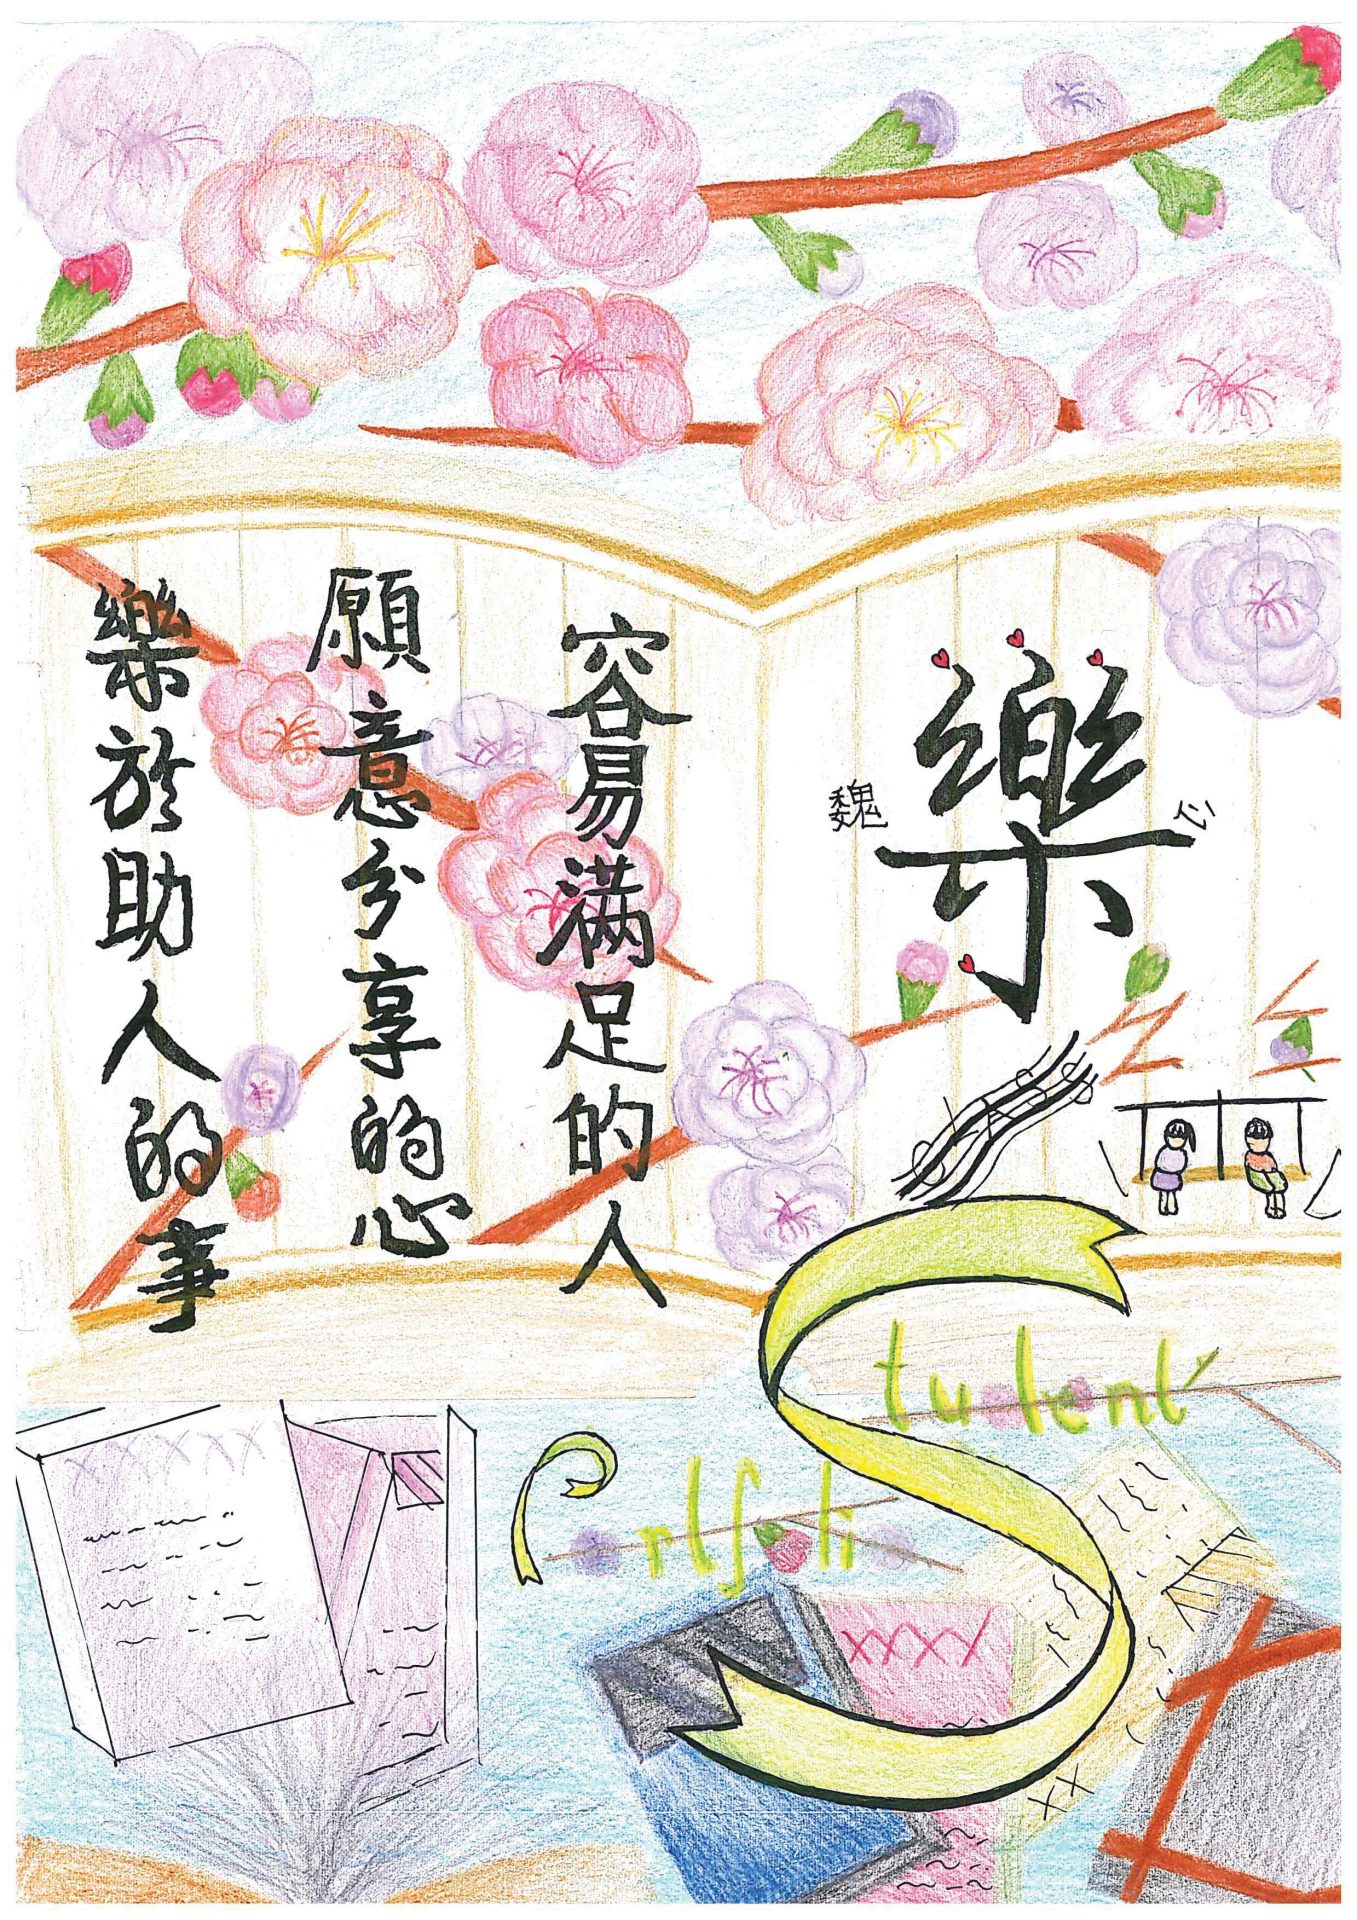 魏樂心
容易滿足的人
願意分享的心
樂於助人的事
Student
Portfolio
XXXXX
XXXX
XX